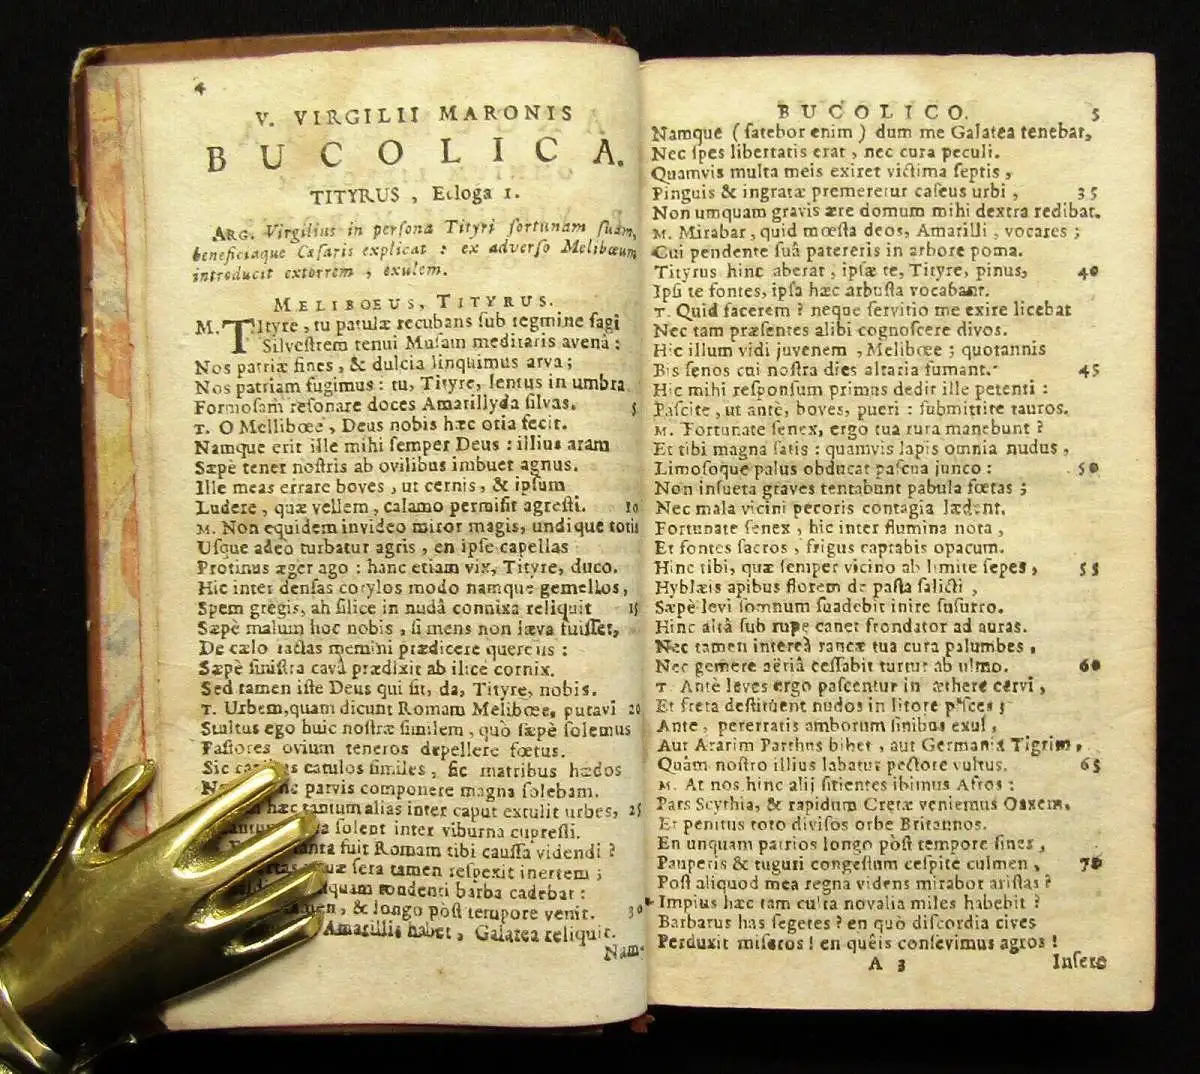 4
V. VIRGILII MARONIS
BUCOLICA.
TITYRUS, Ecloga 1.
ARG. Virgilius in perſona Tityri fortunam ſuam,
beneficiaque Cæſaris explicat : ex adverſo Melibœum
introducit extorrem, exulem.
MELIBOEUS, TITYRUS.
M. TItyre, tu patulæ recubans ſub tegmine fagi
Silveſtrem tenui Muſam meditaris avenâ :
Nos patriæ fines, & dulcia linquimus arva ;
Nos patriam fugimus : tu, Tityre, lentus in umbra
Formoſam reſonare doces Amarillyda ſilvas. 5
T. O Mellibœe, Deus nobis hæc otia fecit.
Namque erit ille mihi ſemper Deus : illius aram
Sæpè tener noſtris ab ovilibus imbuet agnus.
Ille meas errare boves, ut cernis, & ipſum
Ludere, quæ vellem, calamo permiſit agreſti. 10
M. Non equidem invideo miror magis, undique totis
Uſque adeo turbatur agris, en ipſe capellas
Protinus æger ago : hanc etiam vix, Tityre, duco.
Hic inter denſas corylos modo namque gemellos,
Spem gregis, ah ſilice in nudâ connixa reliquit 15
Sæpè malum hoc nobis, ſi mens non læva fuiſſet,
De cælo tactas memini prædicere quercus :
Sæpè ſiniſtra cavâ prædixit ab ilice cornix.
Sed tamen iſte Deus qui ſit, da, Tityre, nobis.
T. Urbem, quam dicunt Romam Melibœe, putavi 20
Stultus ego huic noſtræ ſimilem, quò ſæpè ſolemus
Paſtores ovium teneros depellere fœtus.
Sic catulos ſimiles, ſic matribus hædos
parvis componere magna ſolebam.
hæc tantum alias inter caput extulit urbes, 25
ſolent inter viburna cupreſſi.
tanta fuit Romam tibi cauſſa videndi ?
ſera tamen reſpexit inertem ;
tondenti barba cadebat :
& longo pòſt tempore venit. 30
Amarillis habet, Galatea reliquit.
Nam-
BUCOLICO. 5
Namque (fatebor enim) dum me Galatea tenebat,
Nec ſpes libertatis erat, nec cura peculi.
Quamvis multa meis exiret victima ſeptis,
Pinguis & ingratæ premeretur caſeus urbi, 35
Non umquam gravis ære domum mihi dextra redibat.
M. Mirabar, quid mœſta deos, Amarilli, vocares ;
Cui pendente ſuâ patereris in arbore poma.
Tityrus hinc aberat, ipſæ te, Tityre, pinus, 40
Ipſi te fontes, ipſa hæc arbuſta vocabant.
T. Quid facerem ? neque ſervitio me exire licebat
Nec tam præſentes alibi cognoſcere divos.
Hic illum vidi juvenem, Melibœe ; quotannis
Bis ſenos cui noſtra dies altaria fumant. 45
Hic mihi reſponſum primus dedit ille petenti :
Paſcite, ut antè, boves, pueri : ſubmittite tauros.
M. Fortunate ſenex, ergo tua rura manebunt ?
Et tibi magna ſatis : quamvis lapis omnia nudus,
Limoſoque palus obducat paſcua junco : 50
Non inſueta graves tentabunt pabula fœtas ;
Nec mala vicini pecoris contagia lædent.
Fortunate ſenex, hic inter flumina nota,
Et fontes ſacros, frigus captabis opacum.
Hinc tibi, quæ ſemper vicino ab limite ſepes, 55
Hyblæis apibus florem de paſta ſalicti,
Sæpè levi ſomnum ſuadebit inire ſuſurro.
Hinc altâ ſub rupe canet frondator ad auras.
Nec tamen intereà raucæ tua cura palumbes,
Nec gemere aëriâ ceſſabit turtur ab ulmo. 60
T. Antè leves ergo paſcentur in æthere cervi,
Et freta deſtituent nudos in litore piſces ;
Ante, pererratis amborum finibus exul,
Aut Ararim Parthus bibet, aut Germania Tigrim,
Quàm noſtro illius labatur pectore vultus. 65
M. At nos hinc alij ſitientes ibimus Afros :
Pars Scythia, & rapidum Cretæ veniemus Oaxem,
Et penitus toto diviſos orbe Britannos.
En unquam patrios longo pòſt tempore fines,
Pauperis & tuguri congeſtum ceſpite culmen, 70
Poſt aliquod mea regna videns mirabor ariſtas ?
Impius hæc tam culta novalia miles habebit ?
Barbarus has ſegetes ? en quò diſcordia cives
Perduxit miſeros ! en quêis conſevimus agros !
A 3 Inſere